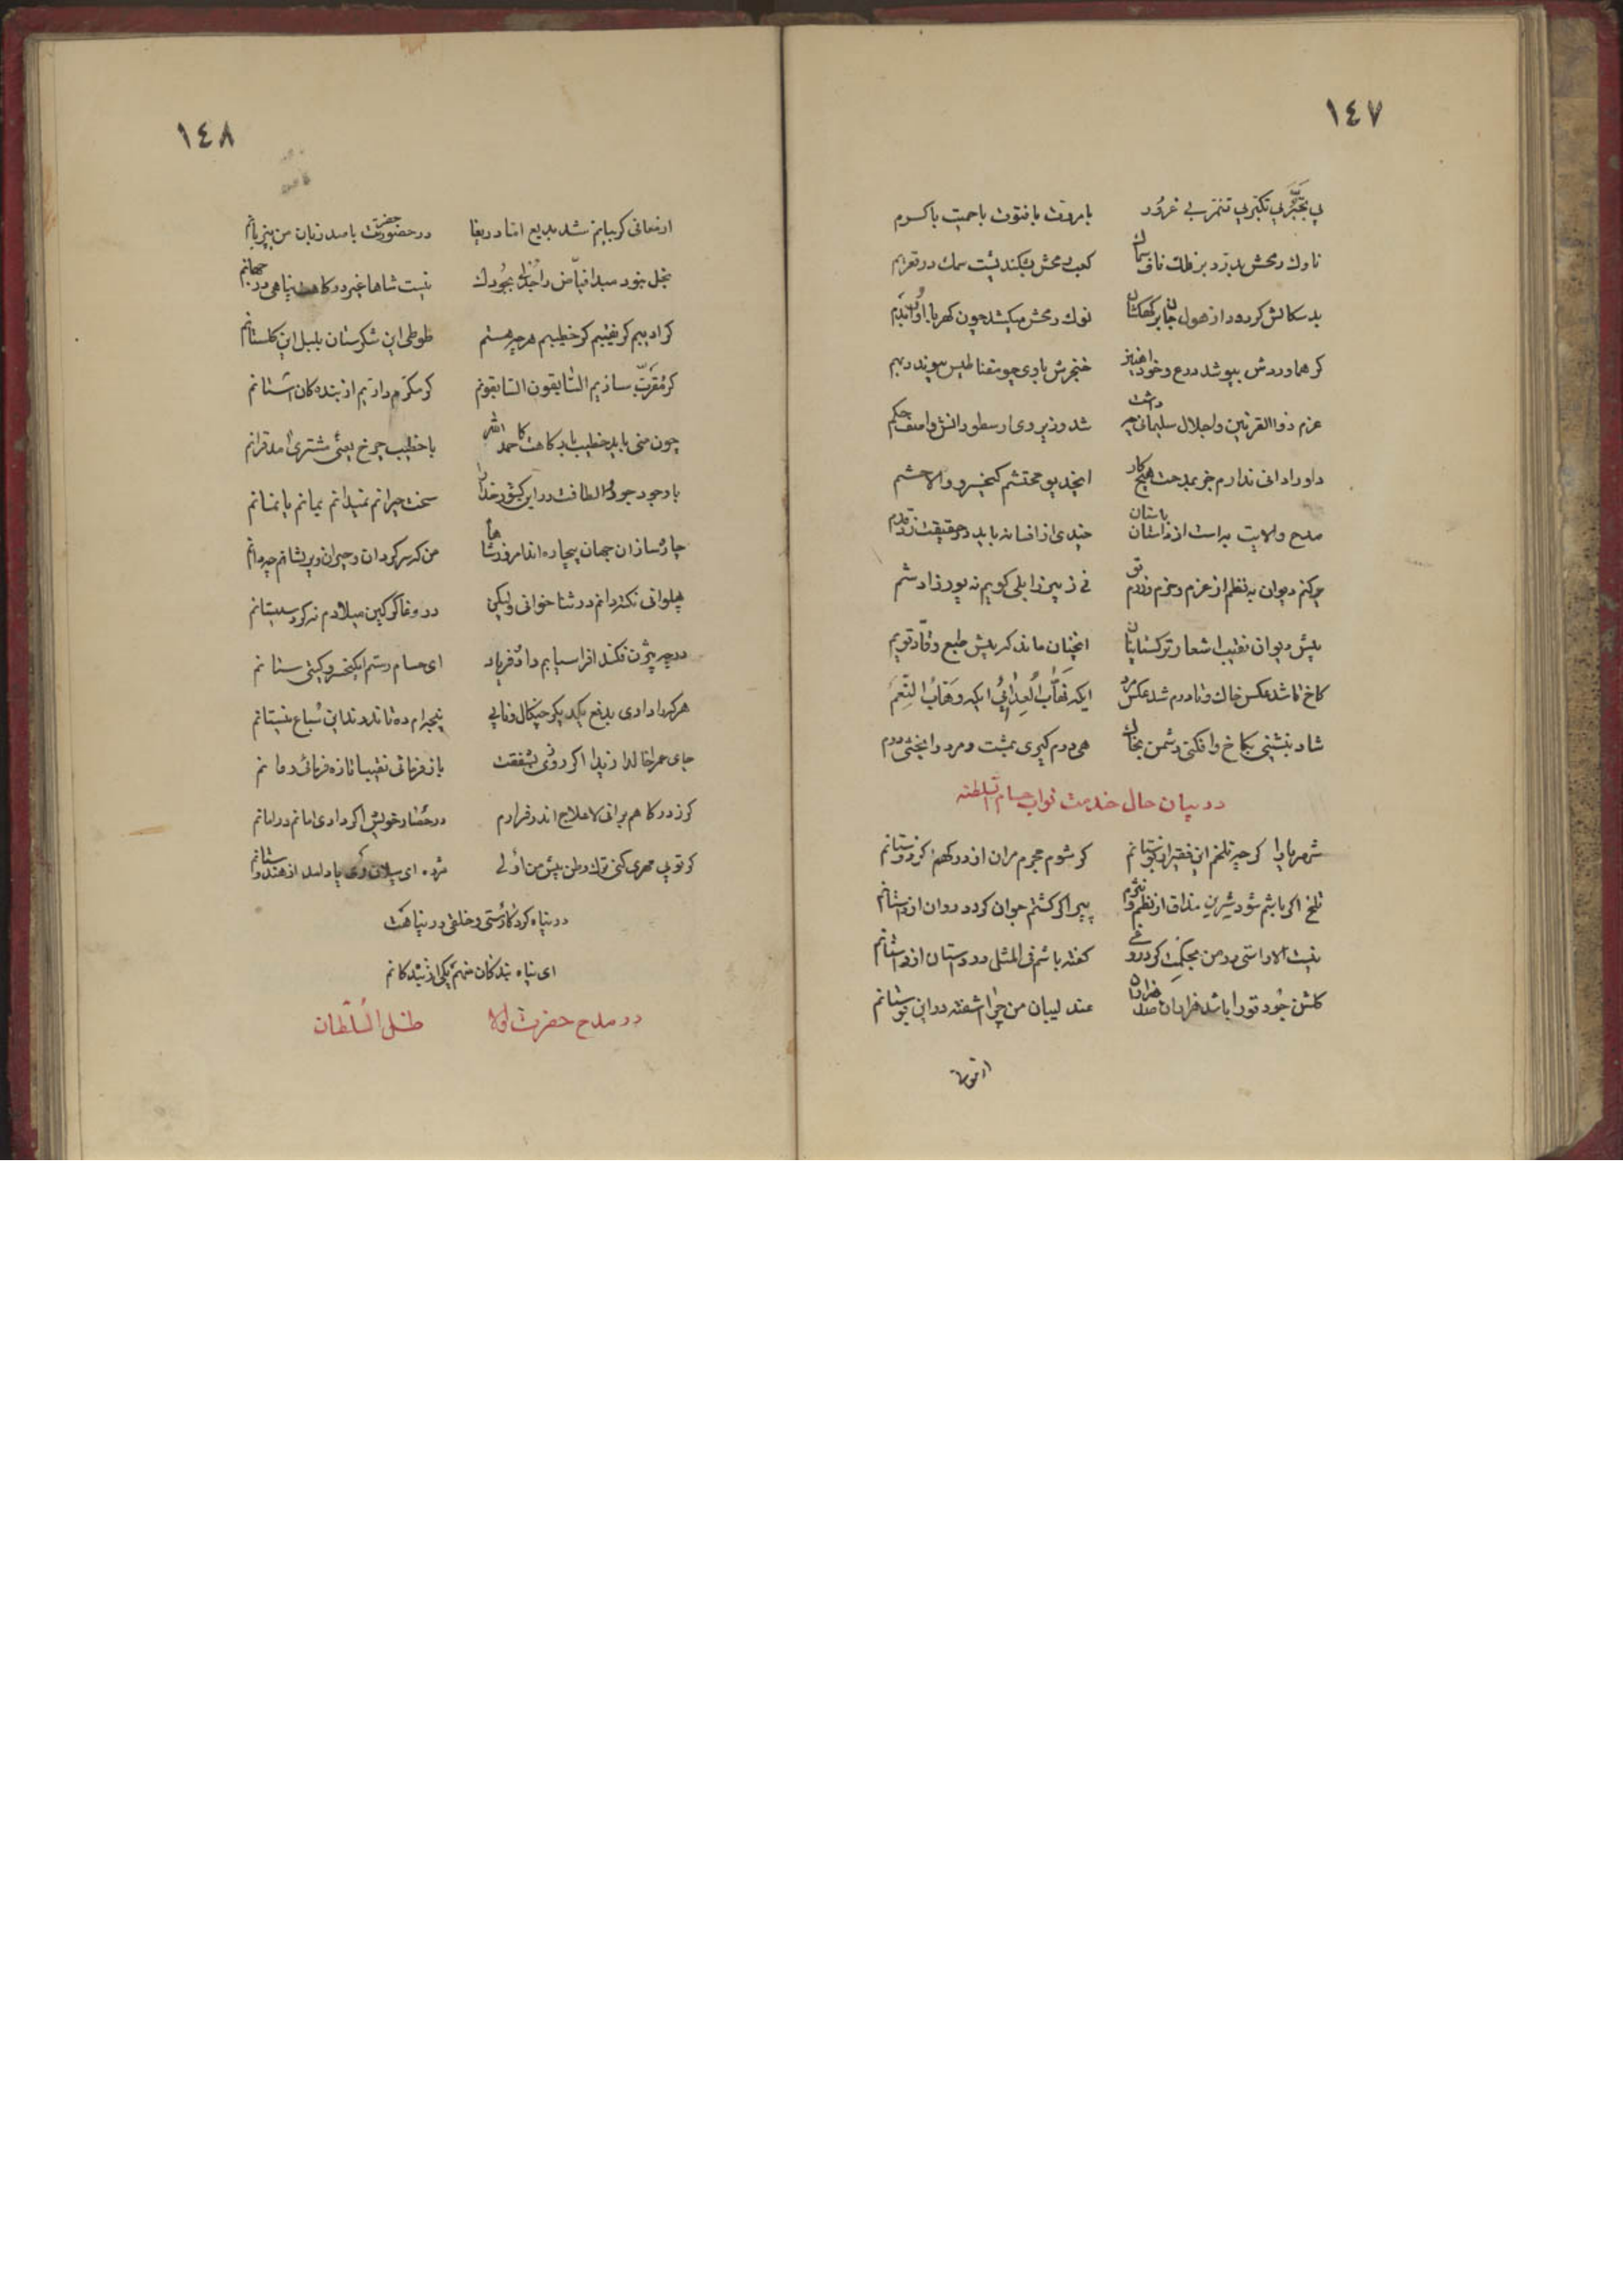 ١٤٧
بی تجبر بی تکبر بی تنمر بی غرور با مروت با فتوت با حمیت با کرم
ناوک رمحش بدرد بر فلک ناف سماک کعب رمحش بشکند پشت سمک در قعر یم
بد سکالش کر رود از هول جان بر کهکشان نوک رمحش میکشد چون کهربا او را
کر هماوردش بپوشد درع و خود خنجرش باوی چو مقناطیس پیوندد بهم
عزم ذوالقرنین و اجلال سلیمانی چه داشت شد وزیر وی ارسطو دانش و آصف حکم
داورا دانی ندارم جز بمدحت هیچ کار ایخدیو محتشم کیخسرو والا حشم
مدح والایت به است از داستان باستان چندی از افسانه باید در حقیقت زد قدم
چو کنم دیوان به نظم از عزم و حزم و رزم تو نی ز پیر زابلی کویم نه پور زادشم
پیش دیوان نقیب اشعار ترکستانیان انچنان ماند که پیش طبع وقاد قویم
کاخ تا شد عکس خاک و نادرم شد عکس مرد ایکه نهاب العدائی ایکه وهاب النعم
شاد بنشینی بکاخ و افکنی دشمن بخاک هی درم کیری بمشت و مرد را بخشی درم
در بیان حال خدمت نواب حسام السلطنه
شهریارا کر چه تلخم این فقیر از بوستانم کر شوم مجرم مران از درکهم کز دوستانم
تلخ اکر باشم شود شیرین مذاق از نظم و نثرم پیر اکر کشتم جوان کردد روان از داستانم
نیست الا راستی در من بحکمت کر دروغی کفته باشم فی المثل در دوستان از راستانم
کلشن جود تو را باشد هزاران صد هزاران عندلیبان من چرا آشفته در این بوستانم
ارمغانی
١٤٨
ارمغانی کر بیانم شد بدیع اما دریغا در حضور حضرتت با صد زبان من بی زبانم
بخل نبود مبدا فیاض را بجودت نیست شاها غیر درکاهت پناهی در جهانم
کر ادیبم کر نقیبم کر خطیبم هر چه هستم طوطی این شکرستان بلبل این کلستانم
کر مقرب سازیم السابقون السابقونم کر مکرم داریم از بنده کان آستانم
چون منی باید خطیب بارکاهت کاحمد الله با خطیب چرخ یعنی مشتری آمد قرانم
با وجود جود و الطافت در این کیتی خدایا سخت حیرانم نمیدانم بمانم یا نمانم
چاره سازان جهان بیچاره اند امروز شاها من که سرکردان و حیران و پریشانم چه دانم
پهلوانی نکته دانم در ثنا خوانی ولیکن در وغا کرکین میلادم نه کرد سیستانم
در چه بیژن فکند افراسیابم داد و فریاد ای حسام رستم ایکیخسرو کیتی ستانم
هر که را دادی بدفع یکدیکر چنکال و نابی پنجه ام ده تا ندرند این سباع نیستانم
جای عمر آنا لدا زیدا اکر روزی بشفقت باز فرمائی نقیبا تازه فرمائی روانم
کر ز درکاهم برانی لا علاج اندر فرارم در حصار خویش اکر دادی امانم در امانم
کر تو بی مهری کنی ترک وطن پیش من اولی مژده ای پیلان که وی یاد آمد از هندوستانم
در پناه کردکارستی و خلقی در پناهت
ای پناه بندکان منهم یکی از بندکانم
در مدح حضرت والا ظل السلطان